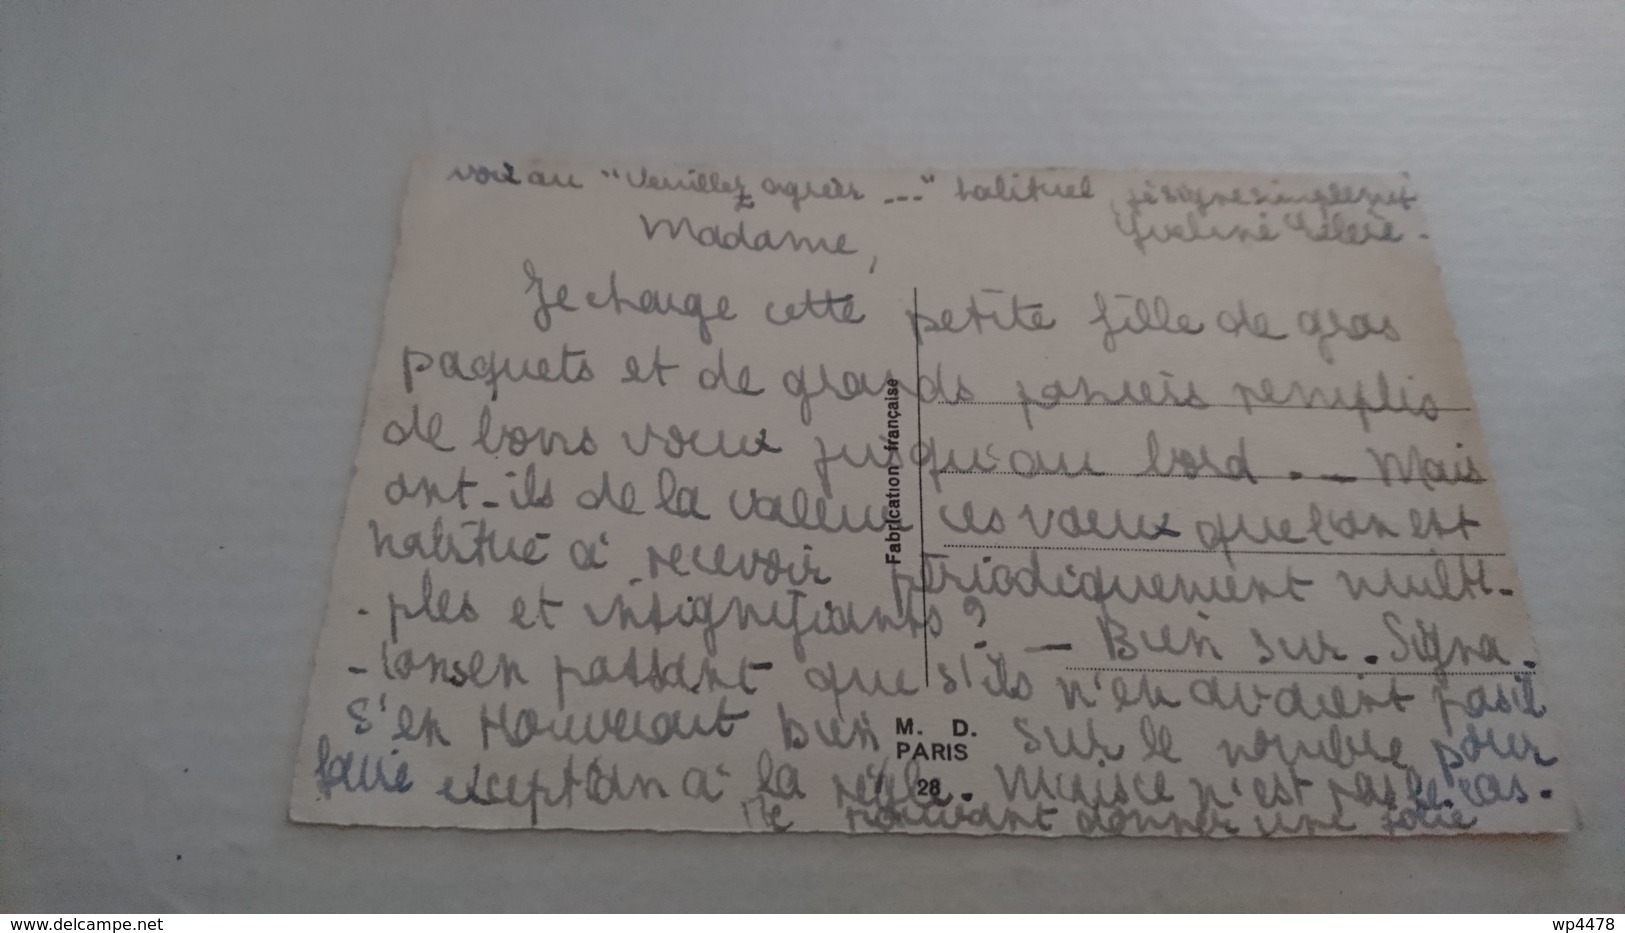 voix au "Veuillez agréer ---" habituel, je signe simplement
Yveline
Madame,
Je charge cette petite fille de gros
paquets et de grands paniers remplis
de bons voeux jusqu'au bord. — Mais
ont-ils de la valeur ces voeux que l'on est
habitué à recevoir périodiquement multi-
-ples et insignifiants ? — Bien sur. Signa.
-lons en passant que s'ils n'en avaient pas il
s'en trouverait bien sur le nombre pour
faire exception à la règle. Mais ce n'est pas le cas.
Ne pouvant donner une jolie
Fabrication française
M. D.
PARIS
28
www.delcampe.net
wp4478